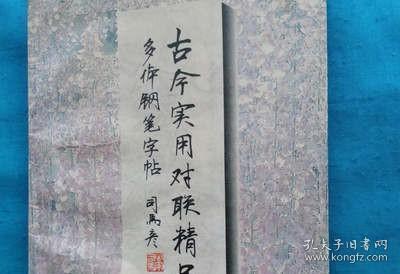 古今实用对联精品
多体钢笔字帖
司马彦
孔夫子旧书网
www.kongfz.com